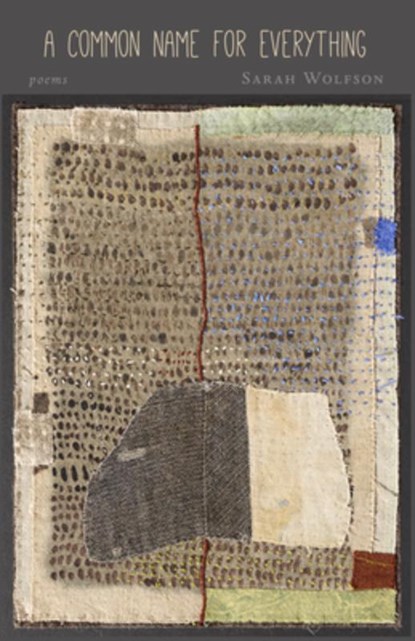 A COMMON NAME FOR EVERYTHING
poems
SARAH WOLFSON